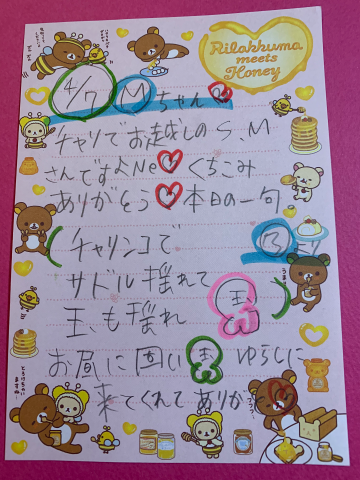 Rilakkuma
meets
Honey
4/7 Mちゃん
チャリでお越しのS.M
さんですよNe くちこみ
ありがとう 本日の一句
チャリンコで
サドル揺れて 玉
玉も揺れ
お昼に固い玉 ゆらしに
来てくれてありがとう